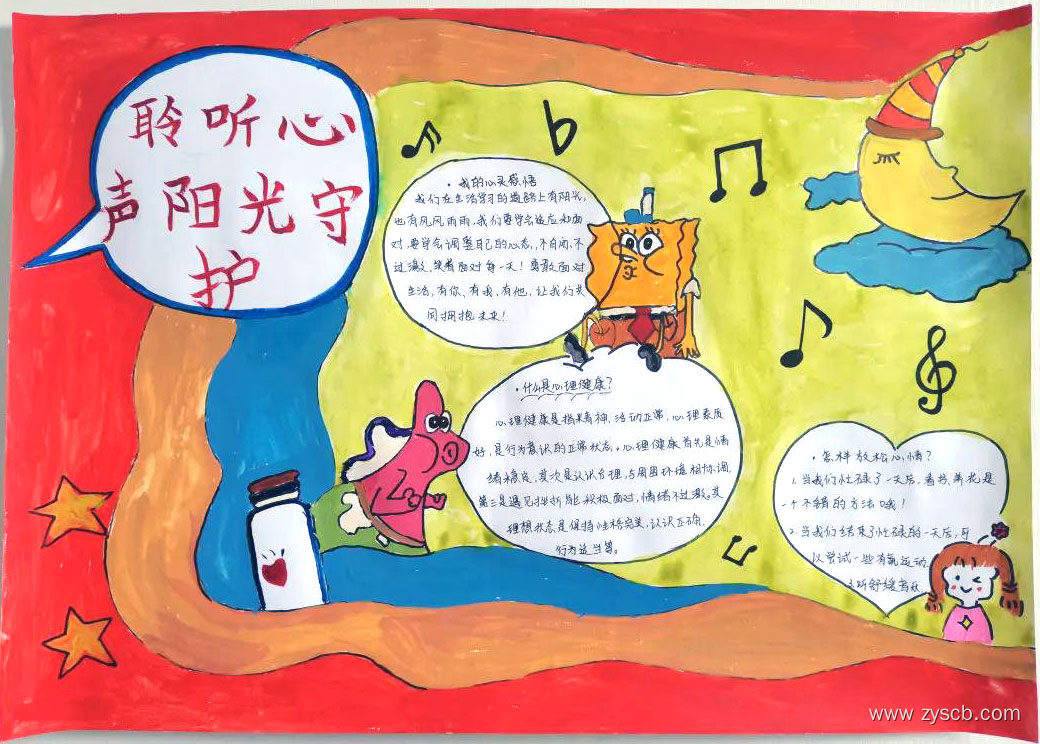 聆听心
声阳光守
护
·我的心灵感悟
我们在生活学习的道路上有阳光,
也有风风雨雨,我们要学会适应和面
对,要学会调整自己的心态,不自闭,不
过激,笑着面对每一天!勇敢面对
生活,有你、有我,有他,让我们共
同拥抱未来!
·什么是心理健康?
心理健康是指精神、活动正常,心理素质
好,是行为意识的正常状态。心理健康首先是情
绪稳定,其次是认识合理,与周围环境相协调,
第三是遇见挫折能积极面对,情绪不过激。其
理想状态是保持性格完美,认识正确,
行为适当等。
·怎样放松心情?
1.当我们忙碌了一天后,看书,养花是
一个不错的方法哦!
2.当我们结束了忙碌的一天后,可
以尝试一些有氧运动.
听舒缓音乐.
www.zyscb.com